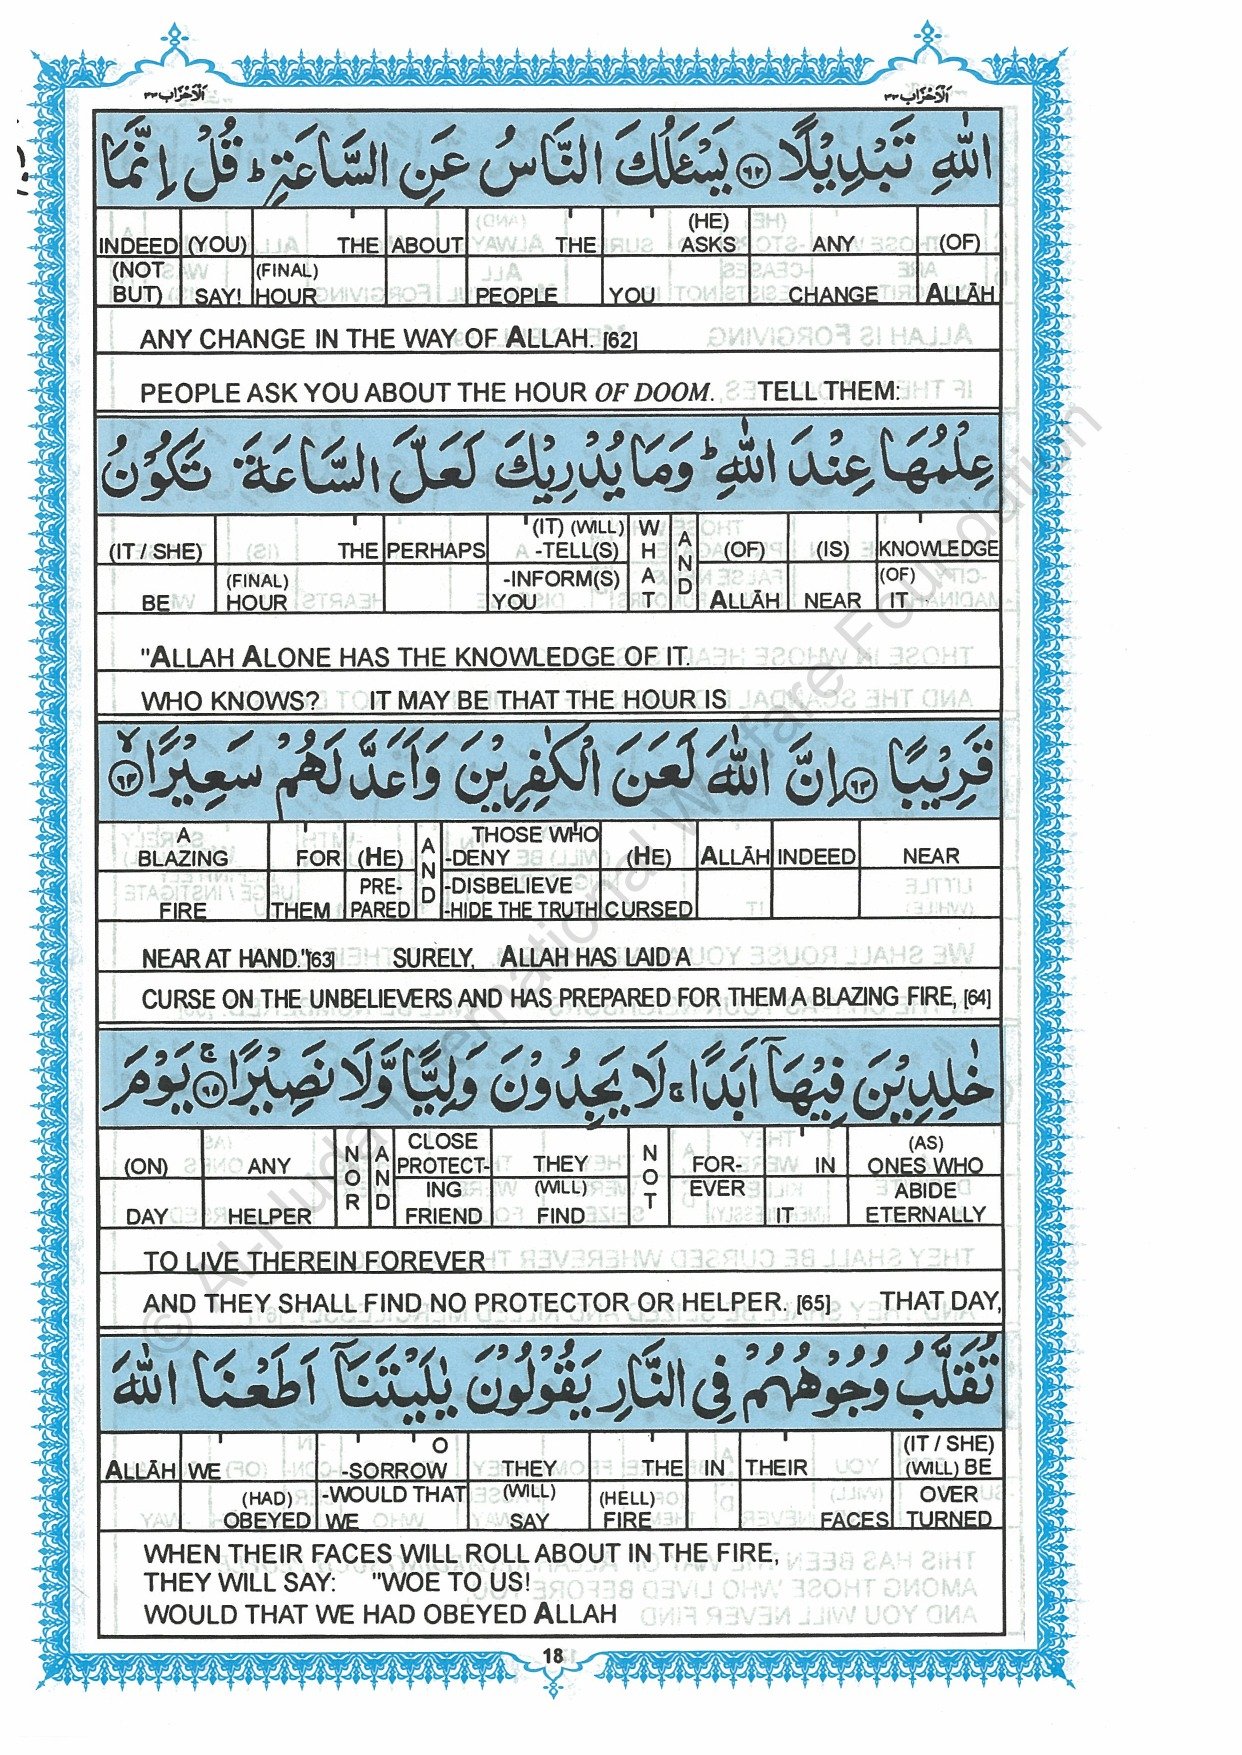 اَلْاَحْزَاب ٣٣
اَلْاَحْزَاب ٣٣
اللّٰهِ تَبْدِيْلًا ﴿٦٢﴾ يَسْـَٔلُكَ النَّاسُ عَنِ السَّاعَةِ ؕ قُلْ اِنَّمَا
(HE)
INDEED (YOU) THE ABOUT THE ASKS ANY (OF)
(NOT (FINAL)
BUT) SAY! HOUR PEOPLE YOU CHANGE ALLĀH
ANY CHANGE IN THE WAY OF ALLAH. [62]
PEOPLE ASK YOU ABOUT THE HOUR OF DOOM. TELL THEM:
عِلْمُهَا عِنْدَ اللّٰهِ ؕ وَمَا يُدْرِيْكَ لَعَلَّ السَّاعَةَ تَكُوْنُ
(IT) (WILL) WHAT AND
(IT / SHE) THE PERHAPS -TELL(S) (OF) (IS) KNOWLEDGE
(FINAL) -INFORM(S) (OF)
BE HOUR YOU ALLĀH NEAR IT
"ALLAH ALONE HAS THE KNOWLEDGE OF IT.
WHO KNOWS? IT MAY BE THAT THE HOUR IS
قَرِيْبًا ﴿٦٣﴾ اِنَّ اللّٰهَ لَعَنَ الْكٰفِرِيْنَ وَاَعَدَّ لَهُمْ سَعِيْرًا ﴿٦٤﴾ ۙ
A AND THOSE WHO
BLAZING FOR (HE) -DENY (HE) ALLĀH INDEED NEAR
PRE- -DISBELIEVE
FIRE THEM PARED -HIDE THE TRUTH CURSED
NEAR AT HAND."[63] SURELY, ALLAH HAS LAID A
CURSE ON THE UNBELIEVERS AND HAS PREPARED FOR THEM A BLAZING FIRE, [64]
خٰلِدِيْنَ فِيْهَاۤ اَبَدًا ۚ لَا يَجِدُوْنَ وَلِيًّا وَّلَا نَصِيْرًا ﴿٦٥﴾ ۚ يَوْمَ
NOR AND CLOSE NOT (AS)
(ON) ANY PROTECT- THEY FOR- IN ONES WHO
ING (WILL) EVER ABIDE
DAY HELPER FRIEND FIND IT ETERNALLY
TO LIVE THEREIN FOREVER
AND THEY SHALL FIND NO PROTECTOR OR HELPER. [65] THAT DAY,
تُقَلَّبُ وُجُوْهُهُمْ فِى النَّارِ يَقُوْلُوْنَ يٰلَيْتَنَاۤ اَطَعْنَا اللّٰهَ
O (IT / SHE)
ALLĀH WE -SORROW THEY THE IN THEIR (WILL) BE
(HAD) -WOULD THAT (WILL) (HELL) OVER
OBEYED WE SAY FIRE FACES TURNED
WHEN THEIR FACES WILL ROLL ABOUT IN THE FIRE,
THEY WILL SAY: "WOE TO US!
WOULD THAT WE HAD OBEYED ALLAH
18
© Al-Huda International Welfare Foundation